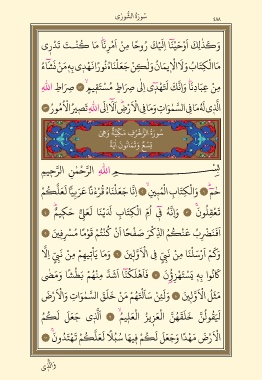 ٤٨٨ سُورَةُ الشُّورٰى
وَكَذٰلِكَ اَوْحَيْنَٓا اِلَيْكَ رُوحًا مِنْ اَمْرِنَاۜ مَا كُنْتَ تَدْرٖى
مَا الْكِتَابُ وَلَا الْاٖيمَانُ وَلٰكِنْ جَعَلْنَاهُ نُورًا نَهْدٖى بِهٖ مَنْ نَشَٓاءُ
مِنْ عِبَادِنَاۜ وَاِنَّكَ لَتَهْدٖٓى اِلٰى صِرَاطٍ مُسْتَقٖيمٍۙ صِرَاطِ اللّٰهِ
الَّذٖى لَهُ مَا فِى السَّمٰوَاتِ وَمَا فِى الْاَرْضِۜ اَلَٓا اِلَى اللّٰهِ تَصٖيرُ الْاُمُورُ
سُورَةُ الزُّخْرُفِ مَكِّيَّةٌ وَهِىَ
تِسْعٌ وَثَمَانُونَ اٰيَةً
بِسْمِ اللّٰهِ الرَّحْمٰنِ الرَّحٖيمِ
حٰمٓۜ وَالْكِتَابِ الْمُبٖينِۙ اِنَّا جَعَلْنَاهُ قُرْءٰنًا عَرَبِيًّا لَعَلَّكُمْ
تَعْقِلُونَۚ وَاِنَّهُ فٖٓى اُمِّ الْكِتَابِ لَدَيْنَا لَعَلِىٌّ حَكٖيمٌۜ
اَفَنَضْرِبُ عَنْكُمُ الذِّكْرَ صَفْحًا اَنْ كُنْتُمْ قَوْمًا مُسْرِفٖينَ
وَكَمْ اَرْسَلْنَا مِنْ نَبِىٍّ فِى الْاَوَّلٖينَ وَمَا يَاْتٖيهِمْ مِنْ نَبِىٍّ اِلَّا
كَانُوا بِهٖ يَسْتَهْزِؤُنَ فَاَهْلَكْنَٓا اَشَدَّ مِنْهُمْ بَطْشًا وَمَضٰى
مَثَلُ الْاَوَّلٖينَ وَلَئِنْ سَاَلْتَهُمْ مَنْ خَلَقَ السَّمٰوَاتِ وَالْاَرْضَ
لَيَقُولُنَّ خَلَقَهُنَّ الْعَزٖيزُ الْعَلٖيمُۙ اَلَّذٖى جَعَلَ لَكُمُ
الْاَرْضَ مَهْدًا وَجَعَلَ لَكُمْ فٖيهَا سُبُلًا لَعَلَّكُمْ تَهْتَدُونَۚ
وَالَّذٖى